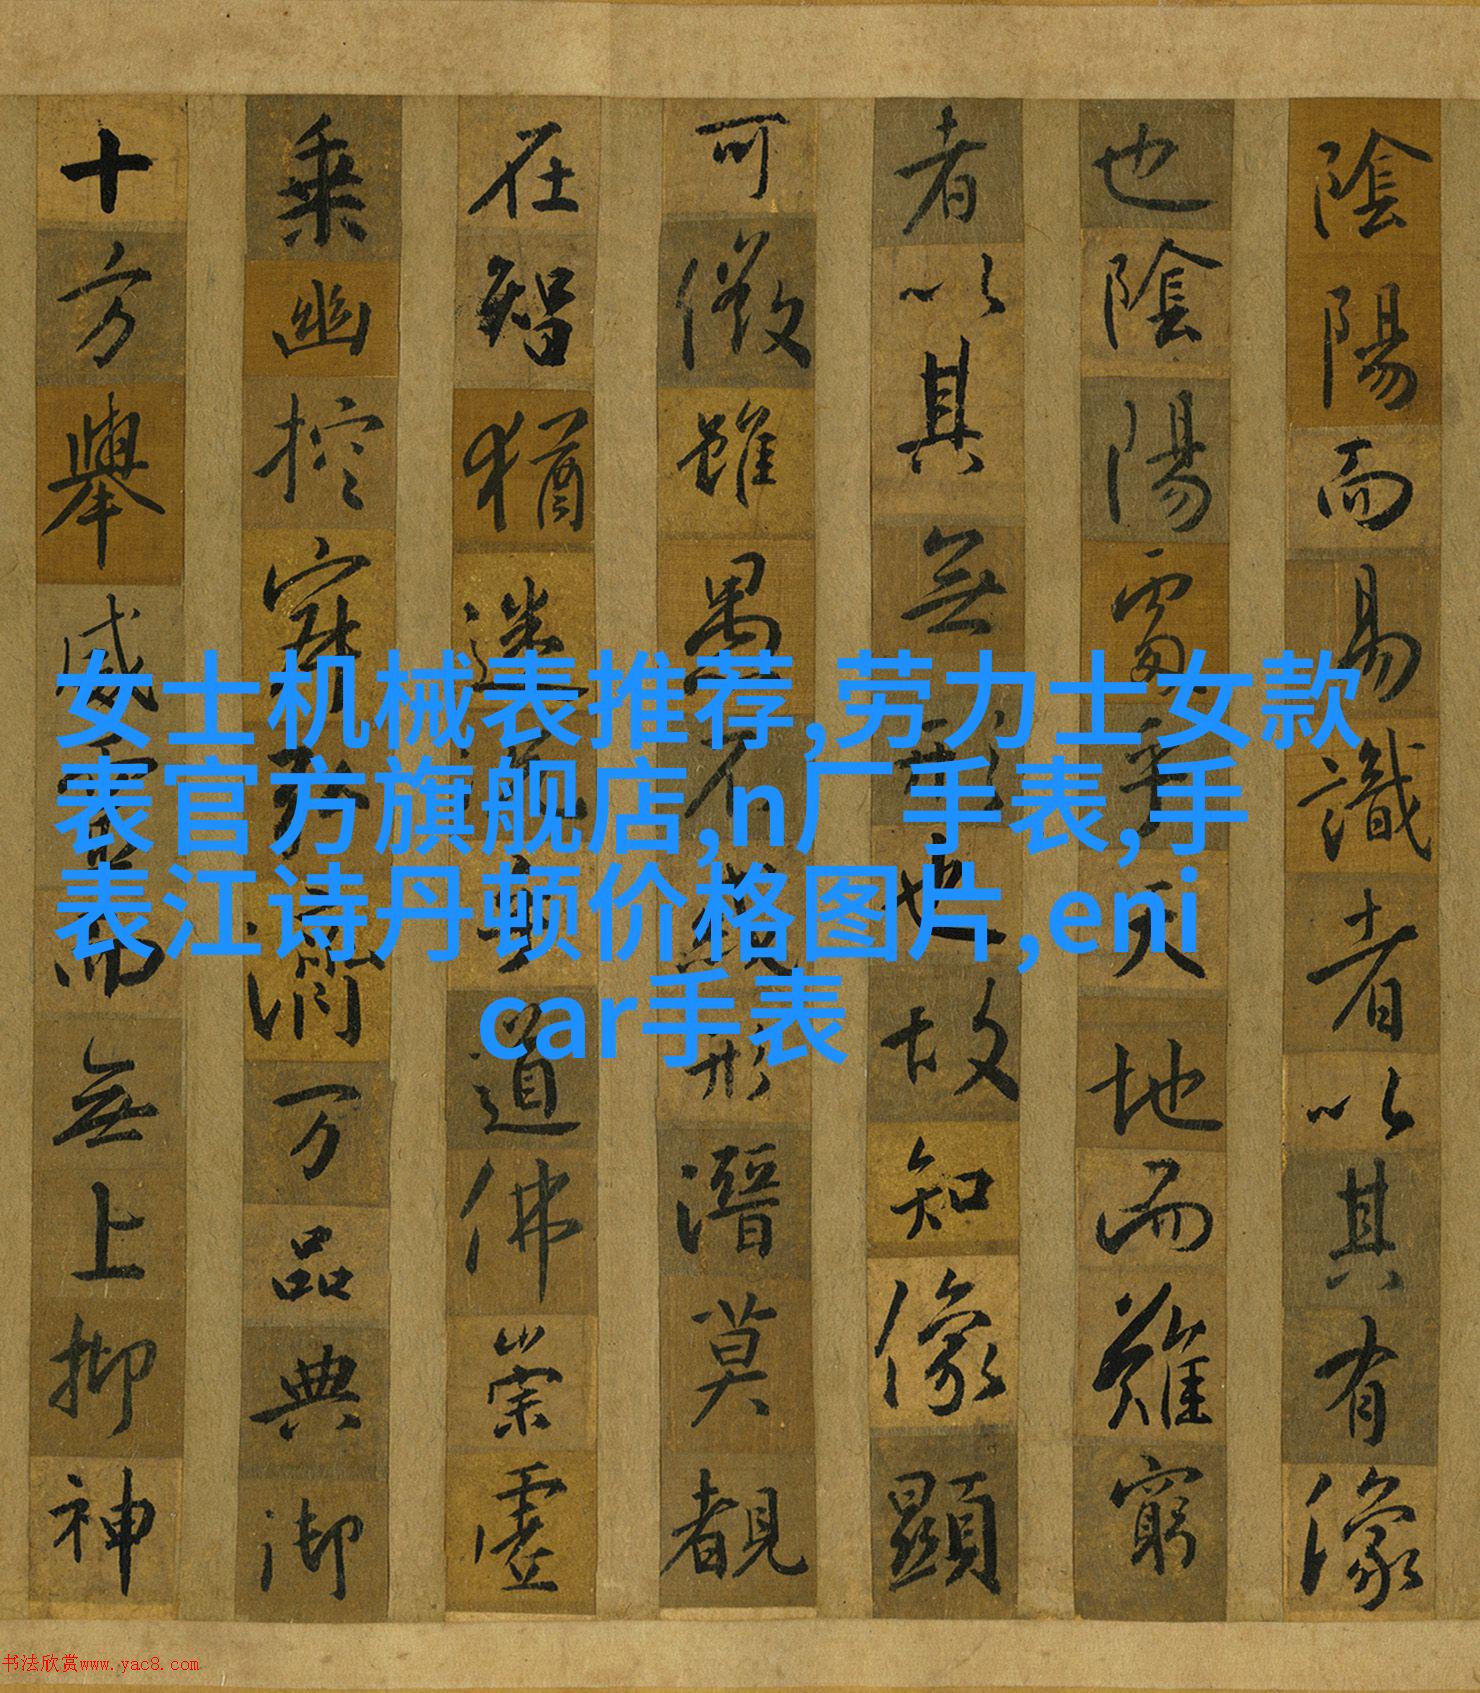 陰陽而易識者以其有像
也陰陽處乎天地而難窮
者以其無形也故知像顯
可徵雖愚不惑形潛莫覩
在智猶迷況乎道佛崇虛
乗幽控寂弘濟万品典御
十方舉威靈而無上抑神
女士机械表推荐,劳力士女款
表官方旗舰店,n厂手表,手
表江诗丹顿价格图片,eni
car手表
书法欣赏www.yac8.com